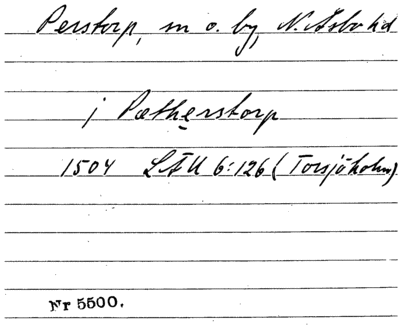 Perstorp, sn o. by, N. Åsbo hd
j Pætherstorp
1504 LÄU 6:126 (Torsjöholm)
Nr 5500.